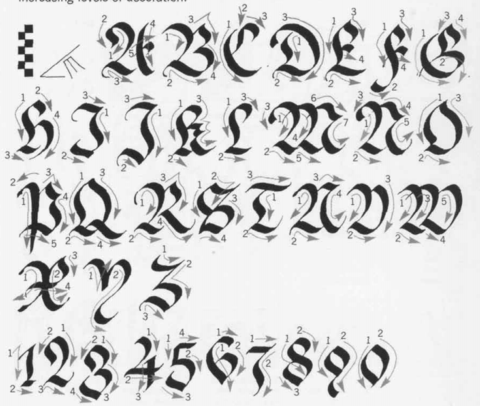 increasing levels of
A B C D E F G
H I J K L M N O
P Q R S T U V W
X Y Z
1 2 3 4 5 6 7 8 9 0